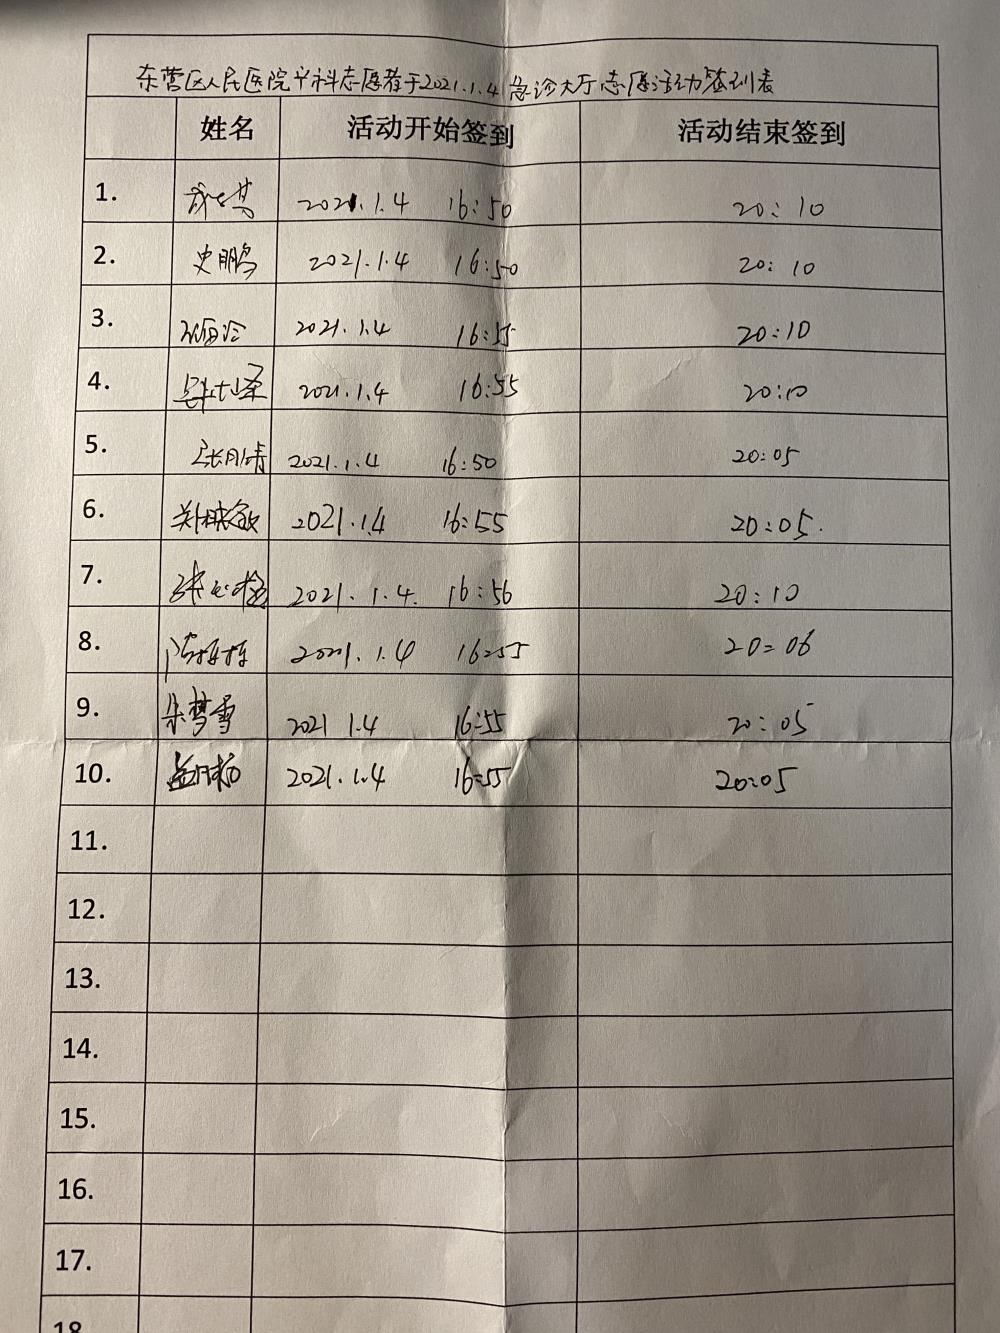 东营区人民医院 科志愿者于2021.1.4急诊大厅志愿活动签到表
姓名 活动开始签到 活动结束签到
1. 2021.1.4 16:50 20:10
2. 史鹏 2021.1.4 16:50 20:10
3. 2021.1.4 16:55 20:10
4. 2021.1.4 16:55 20:10
5. 2021.1.4 16:50 20:05
6. 2021.1.4 16:55 20:05.
7. 2021.1.4. 16:56 20:10
8. 2021.1.4 16:55 20:06
9. 朱梦雪 2021 1.4 16:55 20:05
10. 2021.1.4 16:55 20:05
11.
12.
13.
14.
15.
16.
17.
18